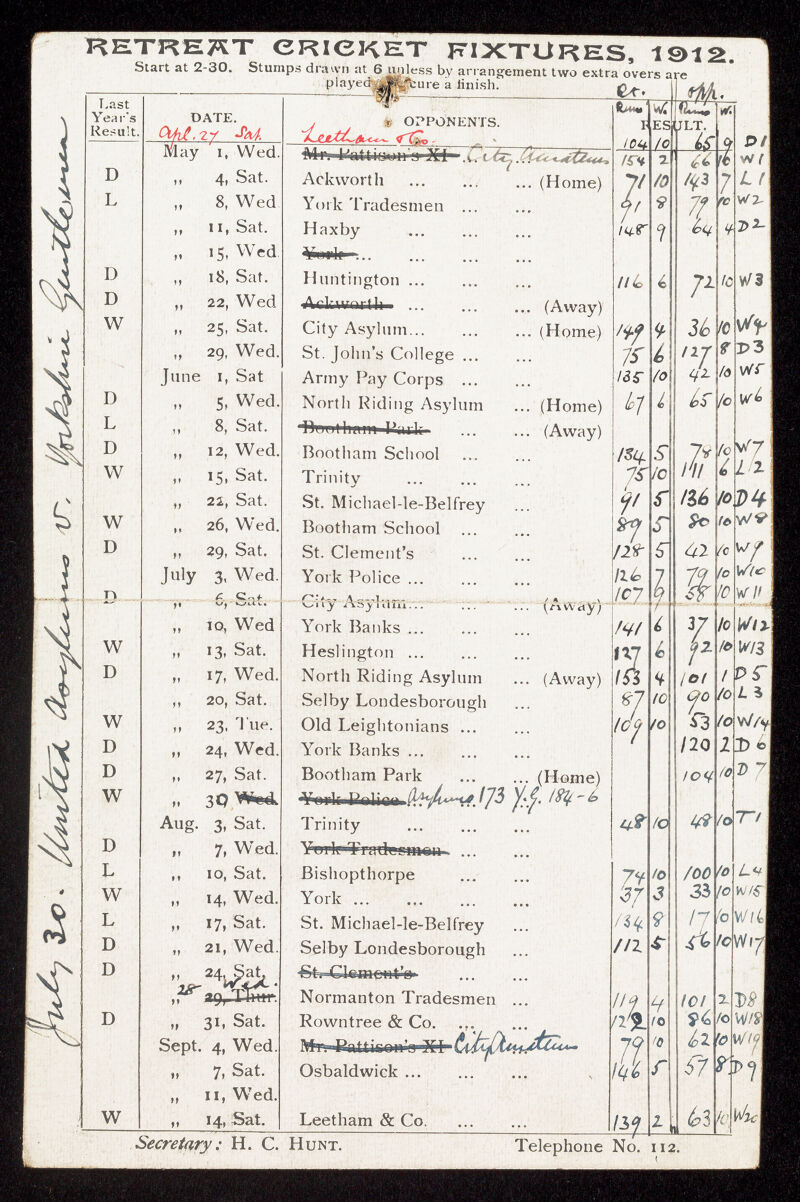 RETREAT CRICKET FIXTURES, 1912.
Start at 2-30. Stumps drawn at 6 unless by arrangement two extra overs are
played cure a finish.
Last Year's Result. DATE. OPPONENTS. RESULT.
Rt. opp.
Runs W. Runs W.
Apl. 27 Sat. Leetham & Co. 104 10 65 9 D1
May 1, Wed. Mr. Pattison's XI ... City Amateurs 154 2 66 10 W1
D ,, 4, Sat. Ackworth ... ... ... (Home) 71 10 143 7 L1
L ,, 8, Wed York Tradesmen ... ... 91 8 79 10 W2
,, 11, Sat. Haxby ... ... ... 148 9 64 4 D2
,, 15, Wed. York ... ... ... ...
D ,, 18, Sat. Huntington ... ... ... 116 6 72 10 W3
D ,, 22, Wed Ackworth ... ... ... (Away)
W ,, 25, Sat. City Asylum... ... ... (Home) 149 4 36 10 W4
,, 29, Wed. St. John's College ... ... 75 6 127 8 D3
June 1, Sat Army Pay Corps ... ... 135 10 42 10 W5
D ,, 5, Wed. North Riding Asylum ... (Home) 67 6 65 10 W6
L ,, 8, Sat. Bootham Park ... ... (Away)
D ,, 12, Wed. Bootham School ... ... 134 5 78 10 W7
W ,, 15, Sat. Trinity ... ... ... 75 10 111 6 L2
,, 22, Sat. St. Michael-le-Belfrey ... 91 5 136 10 D4
W ,, 26, Wed. Bootham School ... ... 89 5 80 10 W8
D ,, 29, Sat. St. Clement's ... ... 128 5 42 10 W9
July 3, Wed. York Police ... ... ... 126 7 79 10 W10
D ,, 6, Sat. City Asylum... ... ... (Away) 107 9 58 10 W11
,, 10, Wed York Banks ... ... ... 141 6 37 10 W12
W ,, 13, Sat. Heslington ... ... ... 127 6 92 10 W13
D ,, 17, Wed. North Riding Asylum ... (Away) 153 4 101 1 D5
,, 20, Sat. Selby Londesborough ... 87 10 90 10 L3
W ,, 23, Tue. Old Leightonians ... ... 109 10 53 10 W14
D ,, 24, Wed. York Banks ... ... ... 120 2 D6
D ,, 27, Sat. Bootham Park ... ... (Home) 104 10 D7
W ,, 30 Wed. York Police Asylums 173 Y.G. 184-6
Aug. 3, Sat. Trinity ... ... ... 48 10 48 10 T1
D ,, 7, Wed. York Tradesmen ... ...
L ,, 10, Sat. Bishopthorpe ... ... 74 10 100 10 L4
W ,, 14, Wed. York ... ... ... ... 37 3 33 10 W15
L ,, 17, Sat. St. Michael-le-Belfrey ... 134 8 17 10 W16
D ,, 21, Wed. Selby Londesborough ... 112 5 56 10 W17
D ,, 24, Sat, St. Clement's ... ...
,, 28 Wed. 29, Thur. Normanton Tradesmen ... 119 4 101 2 D8
D ,, 31, Sat. Rowntree & Co. ... ... 122 10 86 10 W18
Sept. 4, Wed. Mr. Pattison's XI City Amateurs 79 10 62 10 W19
,, 7, Sat. Osbaldwick ... ... ... 146 5 57 8 D9
,, 11, Wed.
W ,, 14, Sat. Leetham & Co. ... ... 139 2 63 10 W20
Secretary: H. C. HUNT. Telephone No. 112.
July 30. United Asylums v. Yorkshire Gentlemen